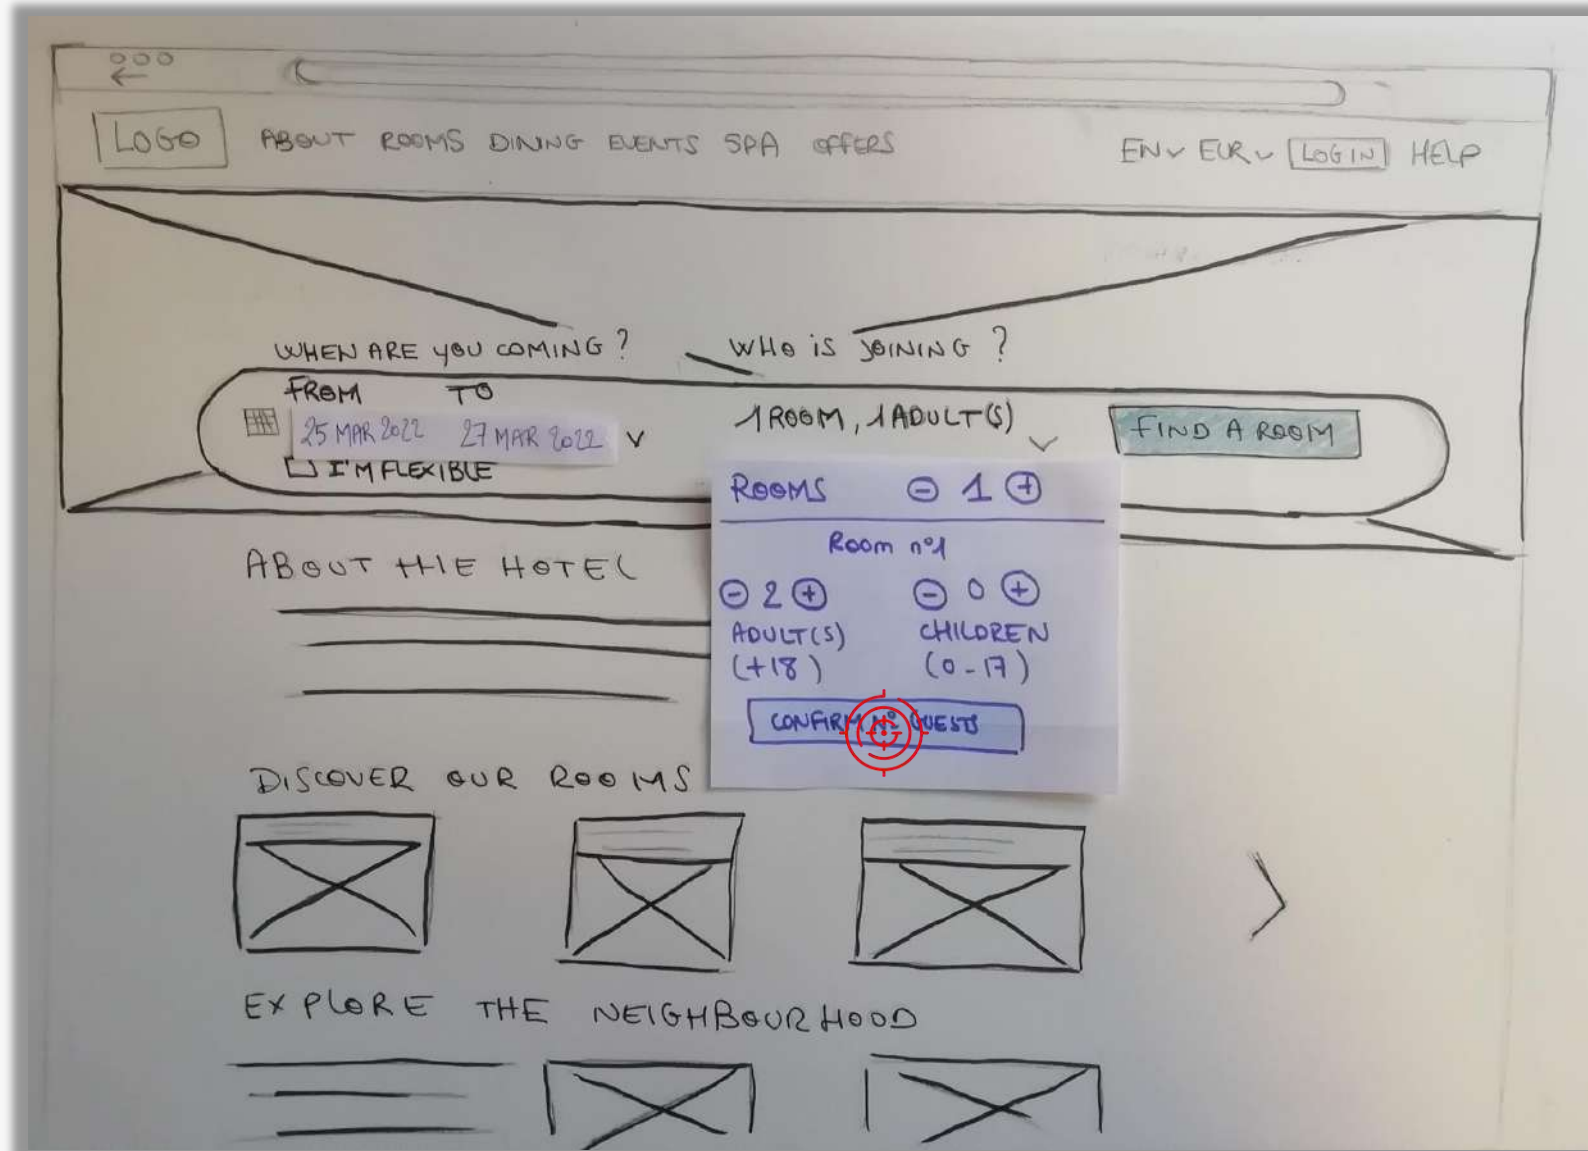 LOGO ABOUT ROOMS DINING EVENTS SPA OFFERS EN EUR LOGIN HELP
WHEN ARE YOU COMING? WHO IS JOINING?
FROM TO
25 MAR 2022 27 MAR 2022 1 ROOM, 1 ADULT(S) FIND A ROOM
I'M FLEXIBLE
ROOMS - 1 +
Room nº1
- 2 + - 0 +
ADULT(S) CHILDREN
(+18) (0-17)
CONFIRM Nº GUESTS
ABOUT THE HOTEL
DISCOVER OUR ROOMS
EXPLORE THE NEIGHBOURHOOD